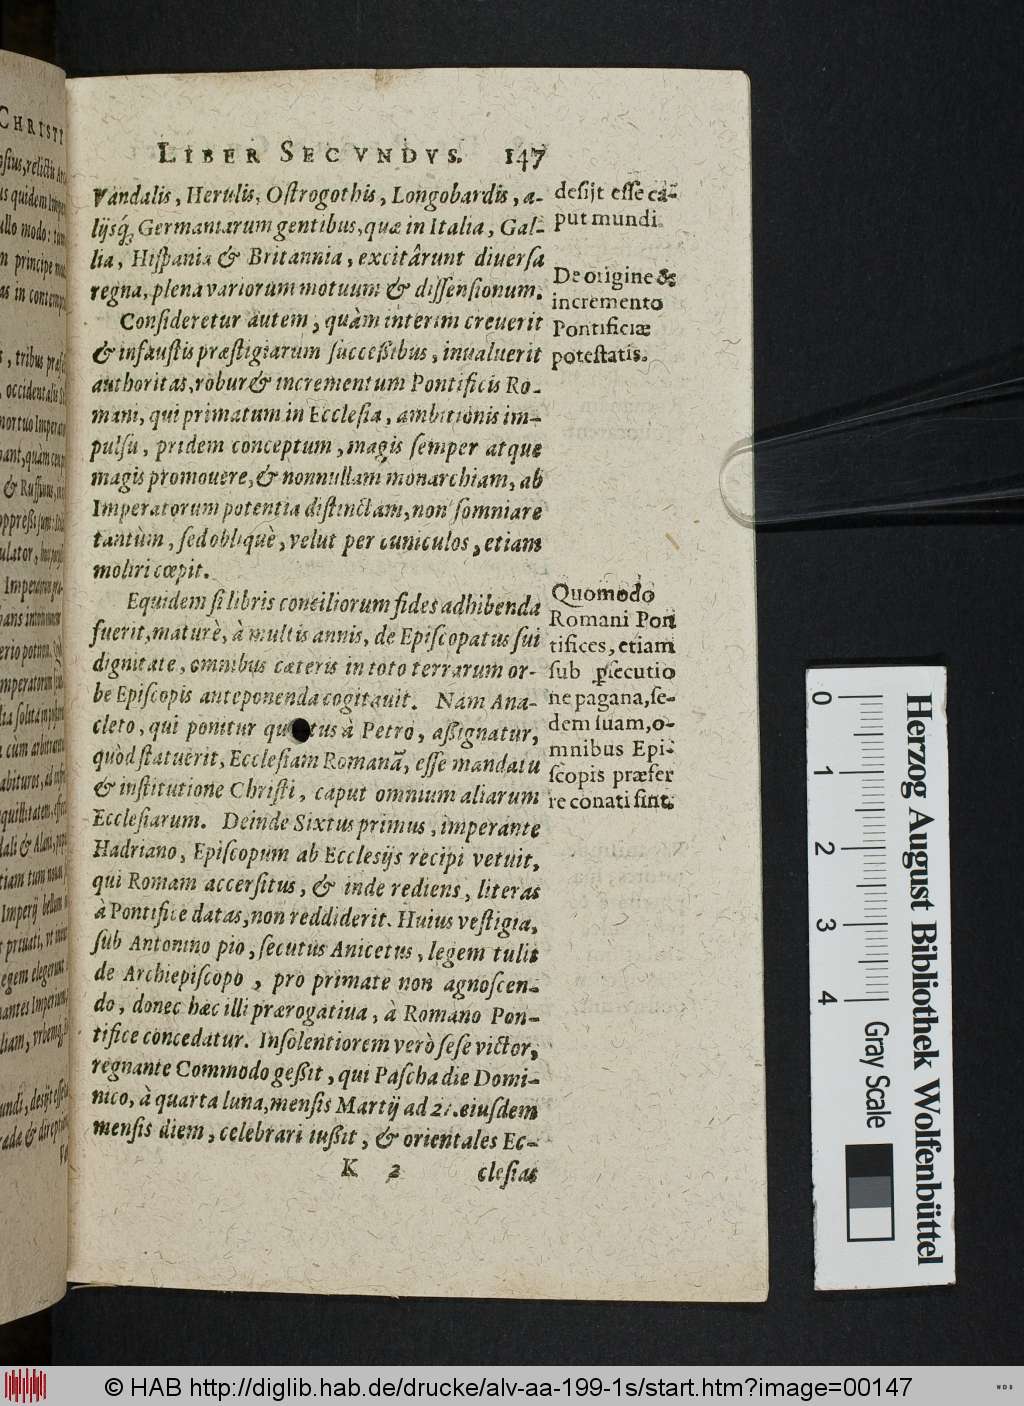 LIBER SECVNDVS. 147
Vandalis, Herulis, Oſtrogothis, Longobardis, a-
lijsq́, Germaniarum gentibus, quæ in Italia, Gal-
lia, Hiſpania & Britannia, excitârunt diuerſa
regna, plena variorum motuum & diſſenſionum.
Conſideretur autem, quàm interim creuerit
& infauſtis præſtigiarum ſucceſſibus, inualuerit
authoritas, robur & incrementum Pontificis Ro-
mani, qui primatum in Eccleſia, ambitionis im-
pulſu, pridem conceptum, magis ſemper atque
magis promouere, & nonnullam monarchiam, ab
Imperatorum potentia diſtinctam, non ſomniare
tantùm, ſed obliquè, velut per cuniculos, etiam
moliri cœpit.
Equidem ſi libris conciliorum fides adhibenda
fuerit, maturè, à multis annis, de Epiſcopatus ſui
dignitate, omnibus cæteris in toto terrarum or-
be Epiſcopis anteponenda cogitauit. Nam Ana-
cleto, qui ponitur qu tus à Petro, aſſignatur,
quòd ſtatuerit, Eccleſiam Romanã, eſſe mandatu
& inſtitutione Chriſti, caput omnium aliarum
Eccleſiarum. Deinde Sixtus primus, imperante
Hadriano, Epiſcopum ab Eccleſijs recipi vetuit,
qui Romam accerſitus, & inde rediens, literas
à Pontifice datas, non reddiderit. Huius veſtigia,
ſub Antonino pio, ſecutus Anicetus, legem tulit
de Archiepiſcopo, pro primate non agnoſcen-
do, donec hæc illi prærogatiua, à Romano Pon-
tifice concedatur. Inſolentiorem verò ſeſe victor,
regnante Commodo geßit, qui Paſcha die Domi-
nico, à quarta luna, menſis Martij ad 21. eiuſdem
menſis diem, celebrari iußit, & orientales Ec-
K 2 cleſias
deſijt eſſe ca-
put mundi.
De origine &
incremento
Pontificiæ
poteſtatis.
Quomodo
Romani Pon
tifices, etiam
ſub ꝑſecutio
ne pagana, ſe-
dem ſuam, o-
mnibus Epi-
ſcopis præfer
re conati ſint.
CHRISTI
0 1 2 3 4
Gray Scale
Herzog August Bibliothek Wolfenbüttel
© HAB http://diglib.hab.de/drucke/alv-aa-199-1s/start.htm?image=00147